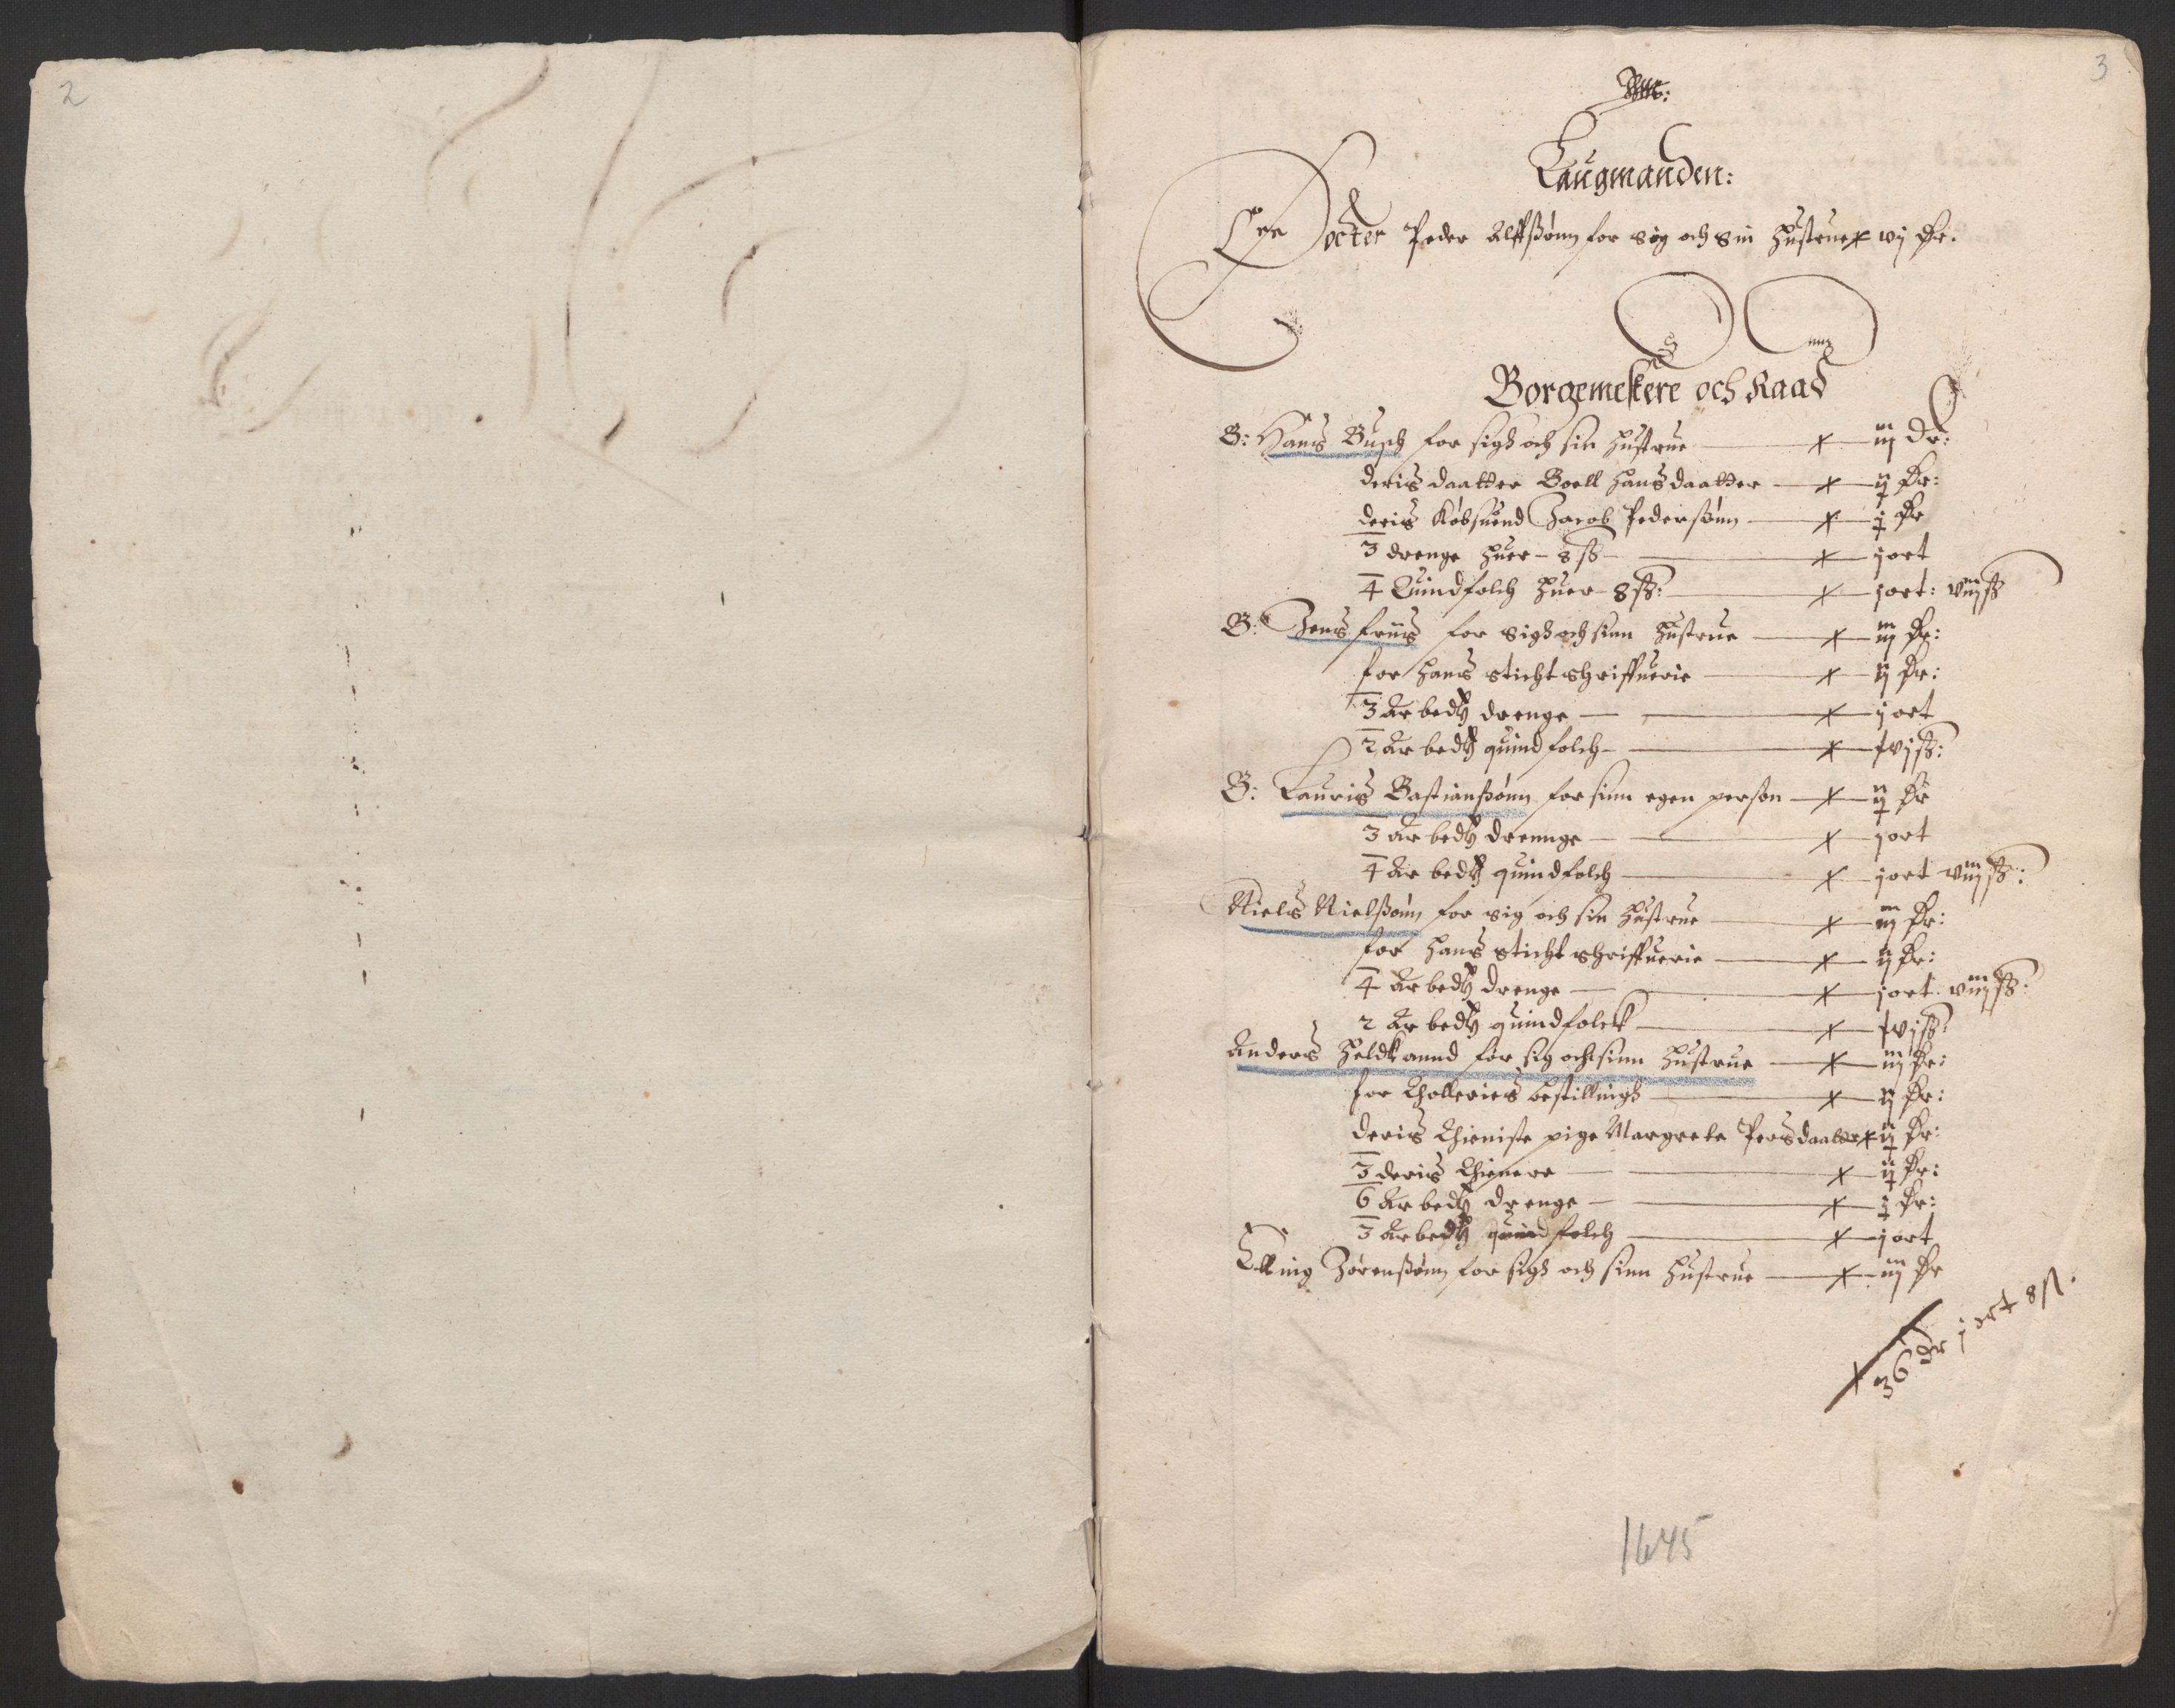 2
3
Laugmanden:
Docter Peder Alffßønn for sig och sin hustrue x vj dr.
Borgemestere och Raad
B: Hans Busch for sigh och sin hustrue x iij dr:
deris daatter Boell Hansdaatter x ij dr:
deris Købsuend Jacob Pederssønn x j dr
3 drenge huer 8 ß x j ort
4 Quindfolch huer 8 ß: x j ort: viij ß
B: Jens friis for sigh och sinn hustrue x iij dr:
for hans stichtschriffuerie x ij dr:
3 Arbedtz drenge x j ort
2 Arbedtz quindfolch x xvj ß:
B: Lauris Bastianßønn for sinn egen person x ij dr
3 Arbedtz drennge x j ort
4 Arbedtz quindfolch x j ort viij ß:
Niels Nielßønn for sig och sin hustrue x iij dr:
for hans sticht schriffuerie x ij dr:
4 Arbedtz drenge x j ort viij ß:
2 Arbedtz quindfolck x xvj ß:
Anders Heldkannd for sig och sinn hustrue x iij dr:
for Tholleries bestillingh x ij dr:
deris Thieniste pige Margrete Persdaatter x dr:
3 deris Thienere x dr:
6 Arbedtz drenge x dr:
3 Arbedtz quindfolch x j ort
Elling Sørenßønn for sigh och sinn hustrue x iij dr
36 dr j ort 8 ß.
1645